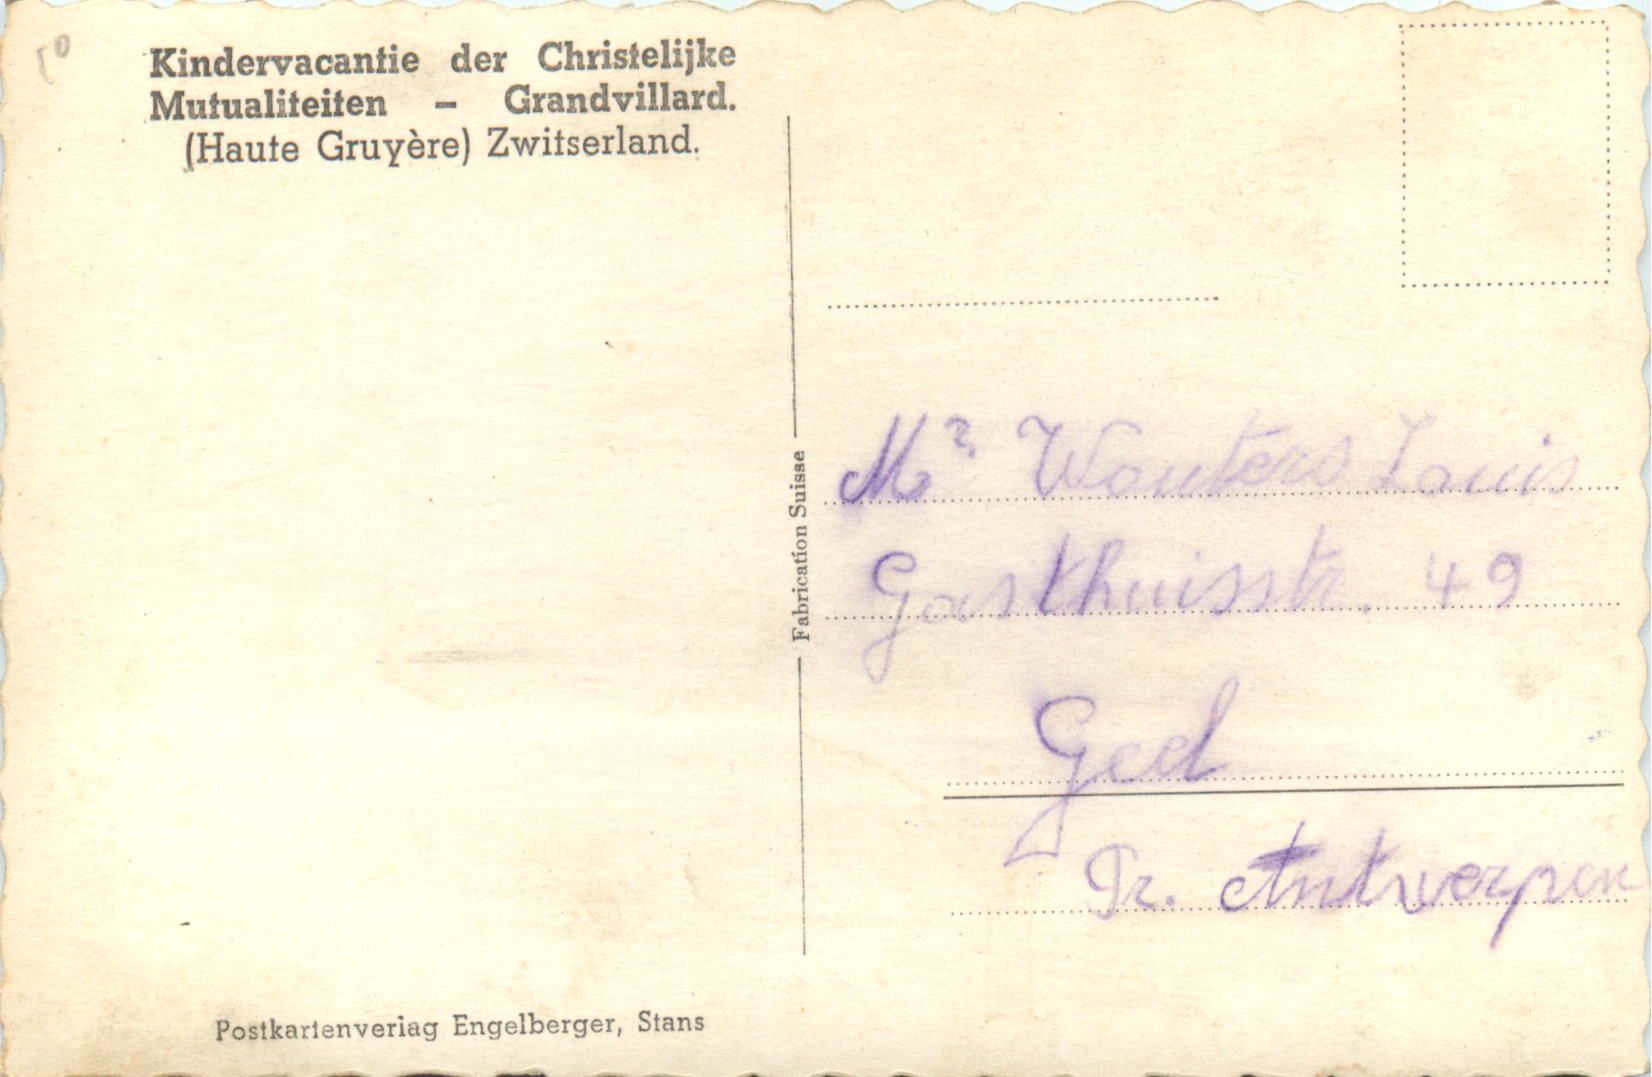 50
Kindervacantie der Christelijke
Mutualiteiten – Grandvillard.
(Haute Gruyère) Zwitserland.
Fabrication Suisse
Mr. Wouters Louis
Gasthuisstr. 49
Geel
Pr. Antwerpen
Postkartenverlag Engelberger, Stans